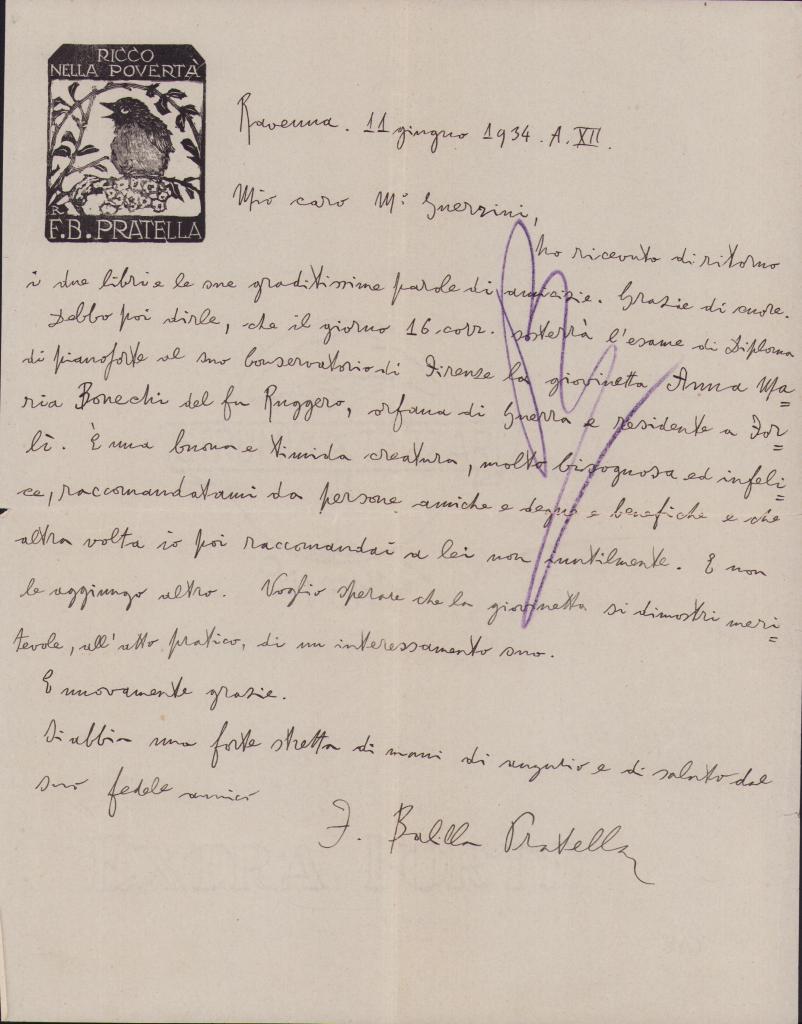 RICCO
NELLA POVERTÀ
R
F.B. PRATELLA
Ravenna. 11 giugno 1934. A. XII.
Mio caro M.º Guerrini,
ho ricevuto di ritorno
i due libri e le sue graditissime parole di amicizie. Grazie di cuore.
Debbo poi dirle, che il giorno 16 corr. sosterrà l'esame di Diploma
di pianoforte al suo Conservatorio di Firenze la giovinetta Anna Ma=
ria Bonechi del fu Ruggero, orfana di Guerra e residente a For=
lì. È una buona e timida creatura, molto bisognosa ed infeli=
ce, raccomandatami da persone amiche e degne e benefiche e che
altra volta io poi raccomandai a lei non inutilmente. E non
le aggiungo altro. Voglio sperare che la giovinetta si dimostri meri=
tevole, all'atto pratico, di un interessamento suo.
E nuovamente grazie.
Si abbia una forte stretta di mani di augurio e di saluto dal
suo fedele amico
F. Balilla Pratella